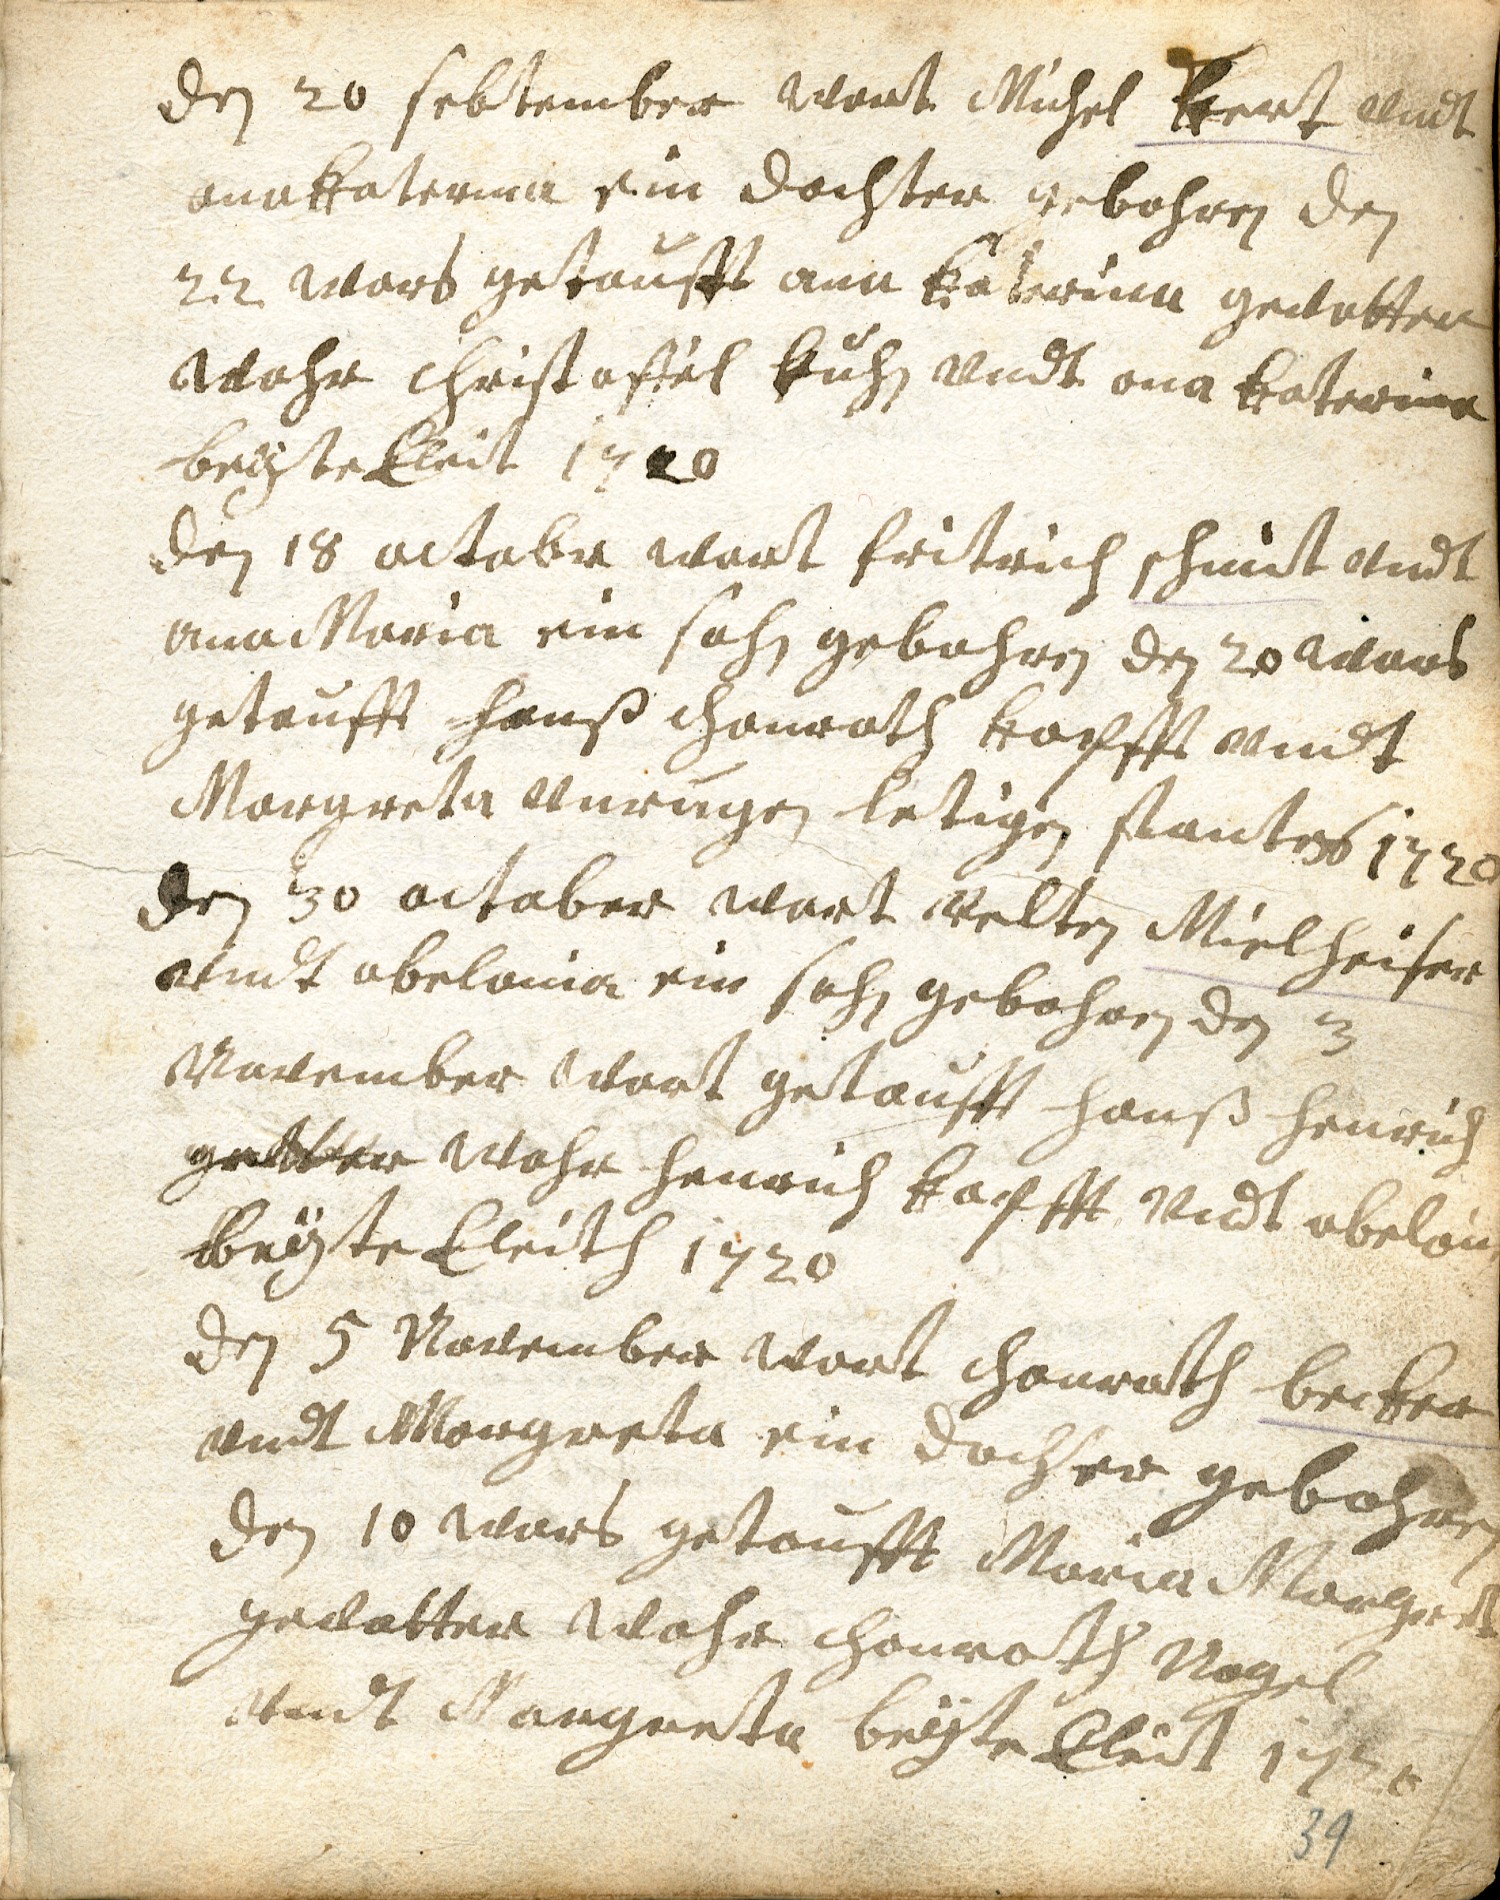 den 20 sebtember wart Michel kert vndt
ana katerina ein dochter gebohren den
22 wars getaufft ann katerina gevatter
wahr christoffel kuhn vndt ana katerina
beyte Eleit 1720
den 18 octobr wart fritrich schmit vndt
ana Maria ein sohn gebohren den 20 wars
getaufft hanß chonrath kopfft vndt
Margreta letigen stantes 1720
den 30 october wart velten Mielheiser
vndt abelonia ein sohn gebohren den 3
November wart getaufft hanß henrich
wahr henrich kopfft vndt abeloni
beyte Eleith 1720
den 5 November wart chonrath becker
vndt Margreta ein dochter gebohren
den 10 wars getaufft Maria Margret
gevatter wahr chonrath Nagel
vndt Margreta beyte Eleit 1720
39